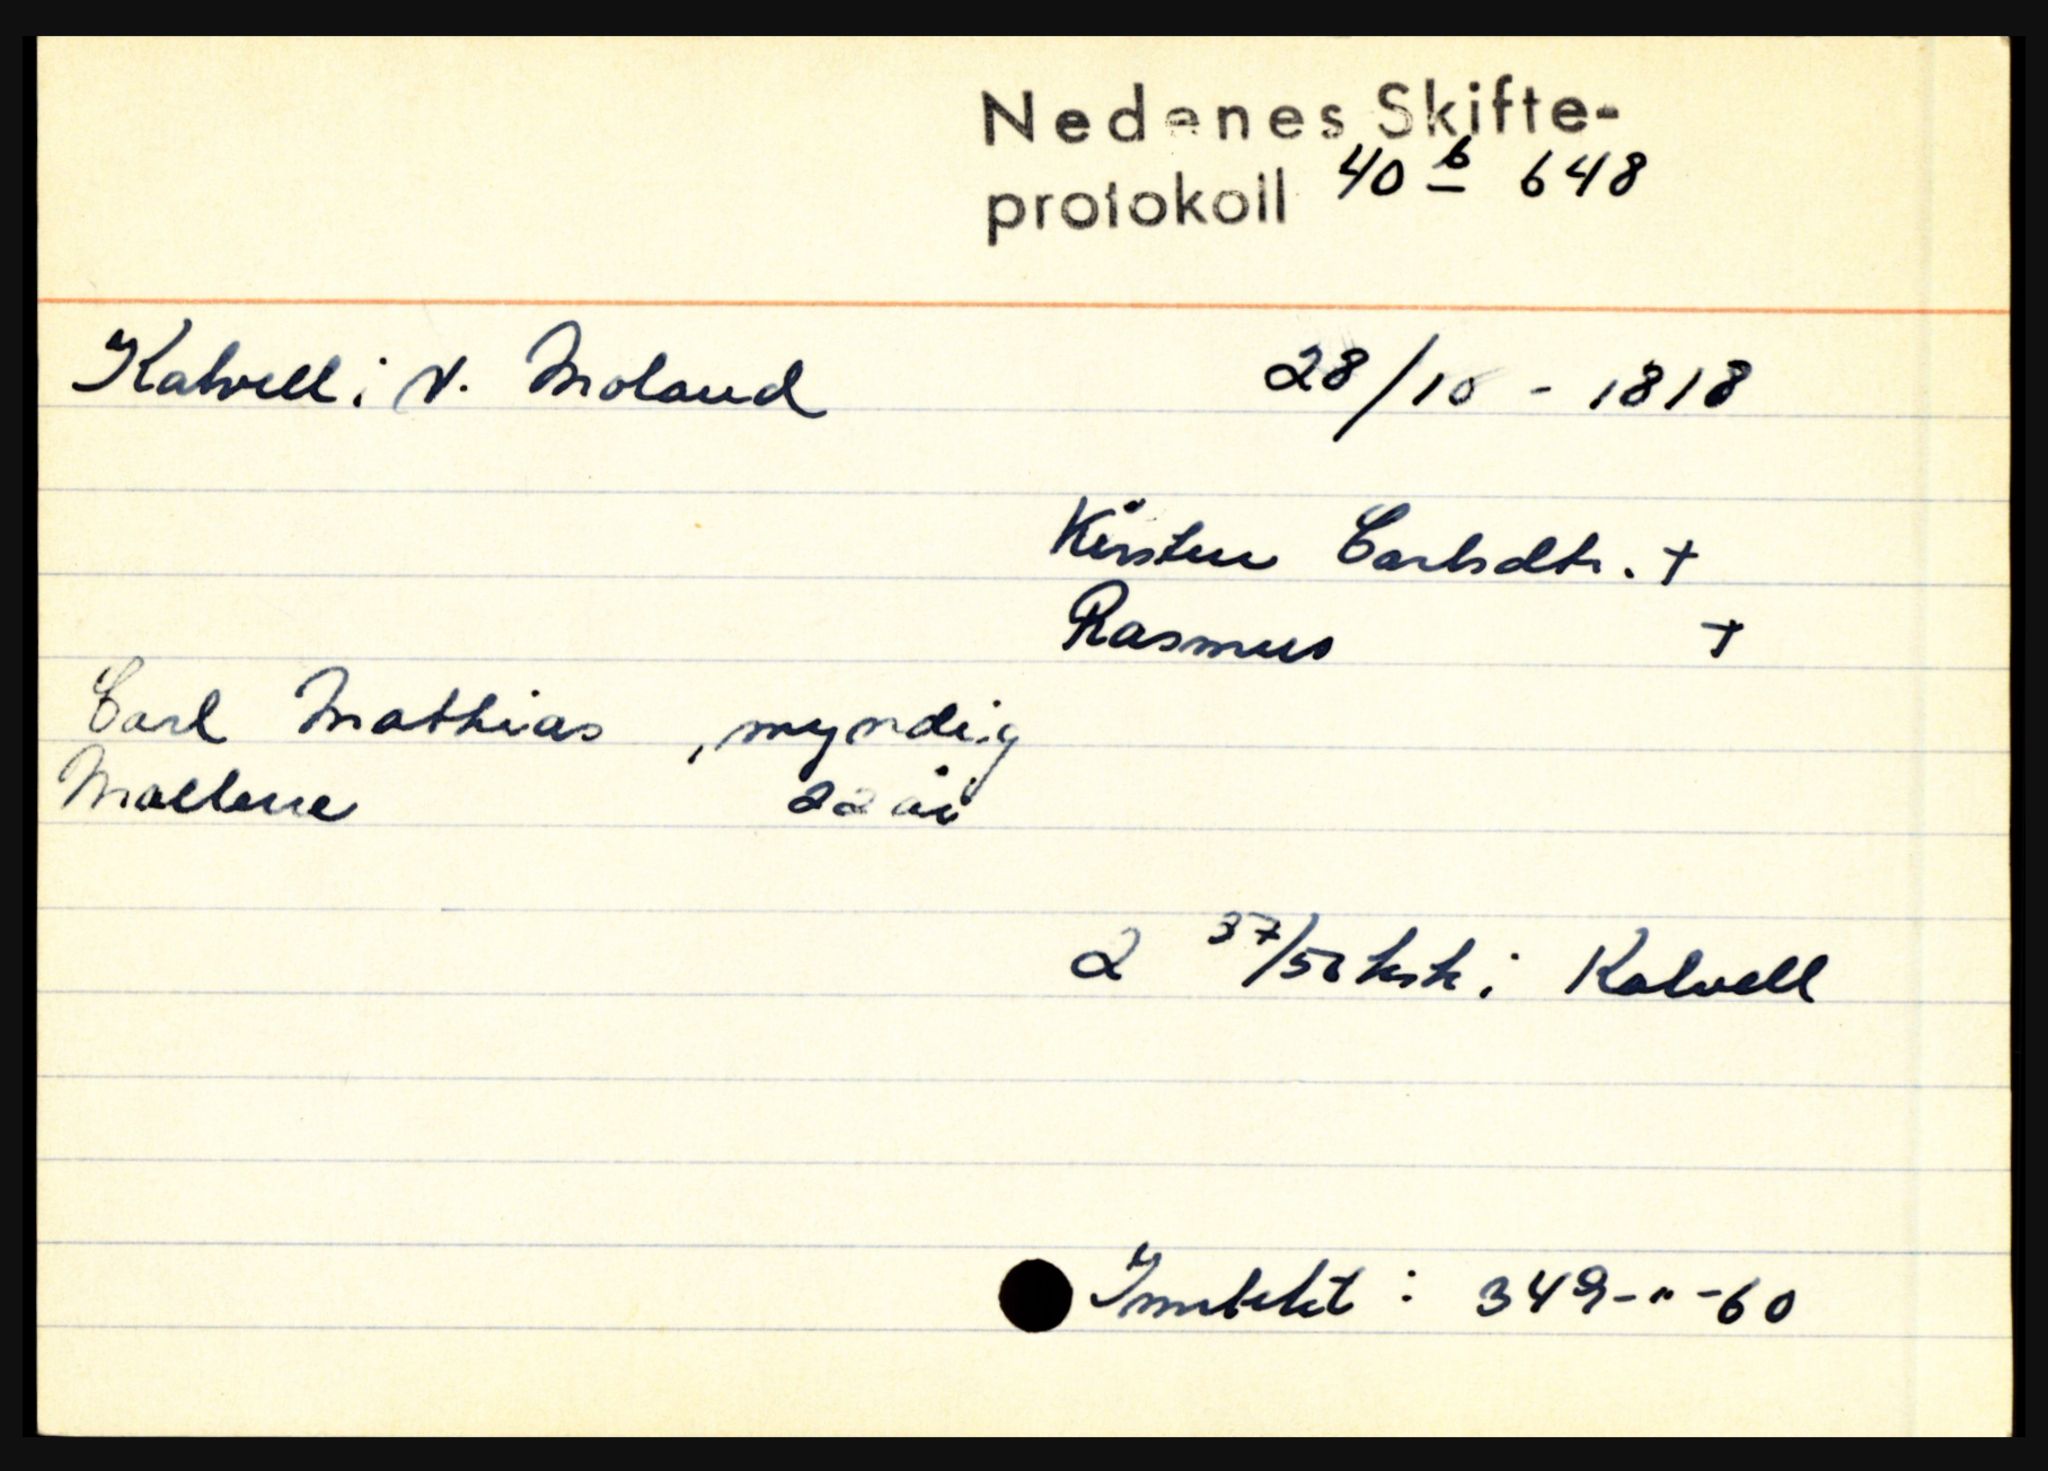 Nedenes Skifte-
protokoll 40 b 648
Kalvell i V. Moland 28/10 - 1818
Kirsten Carlsdtr. +
Rasmus +
Carl Mathias , myndig
Mallene 22 år
2 37/50 ksk i Kalvell
: 349-"-60